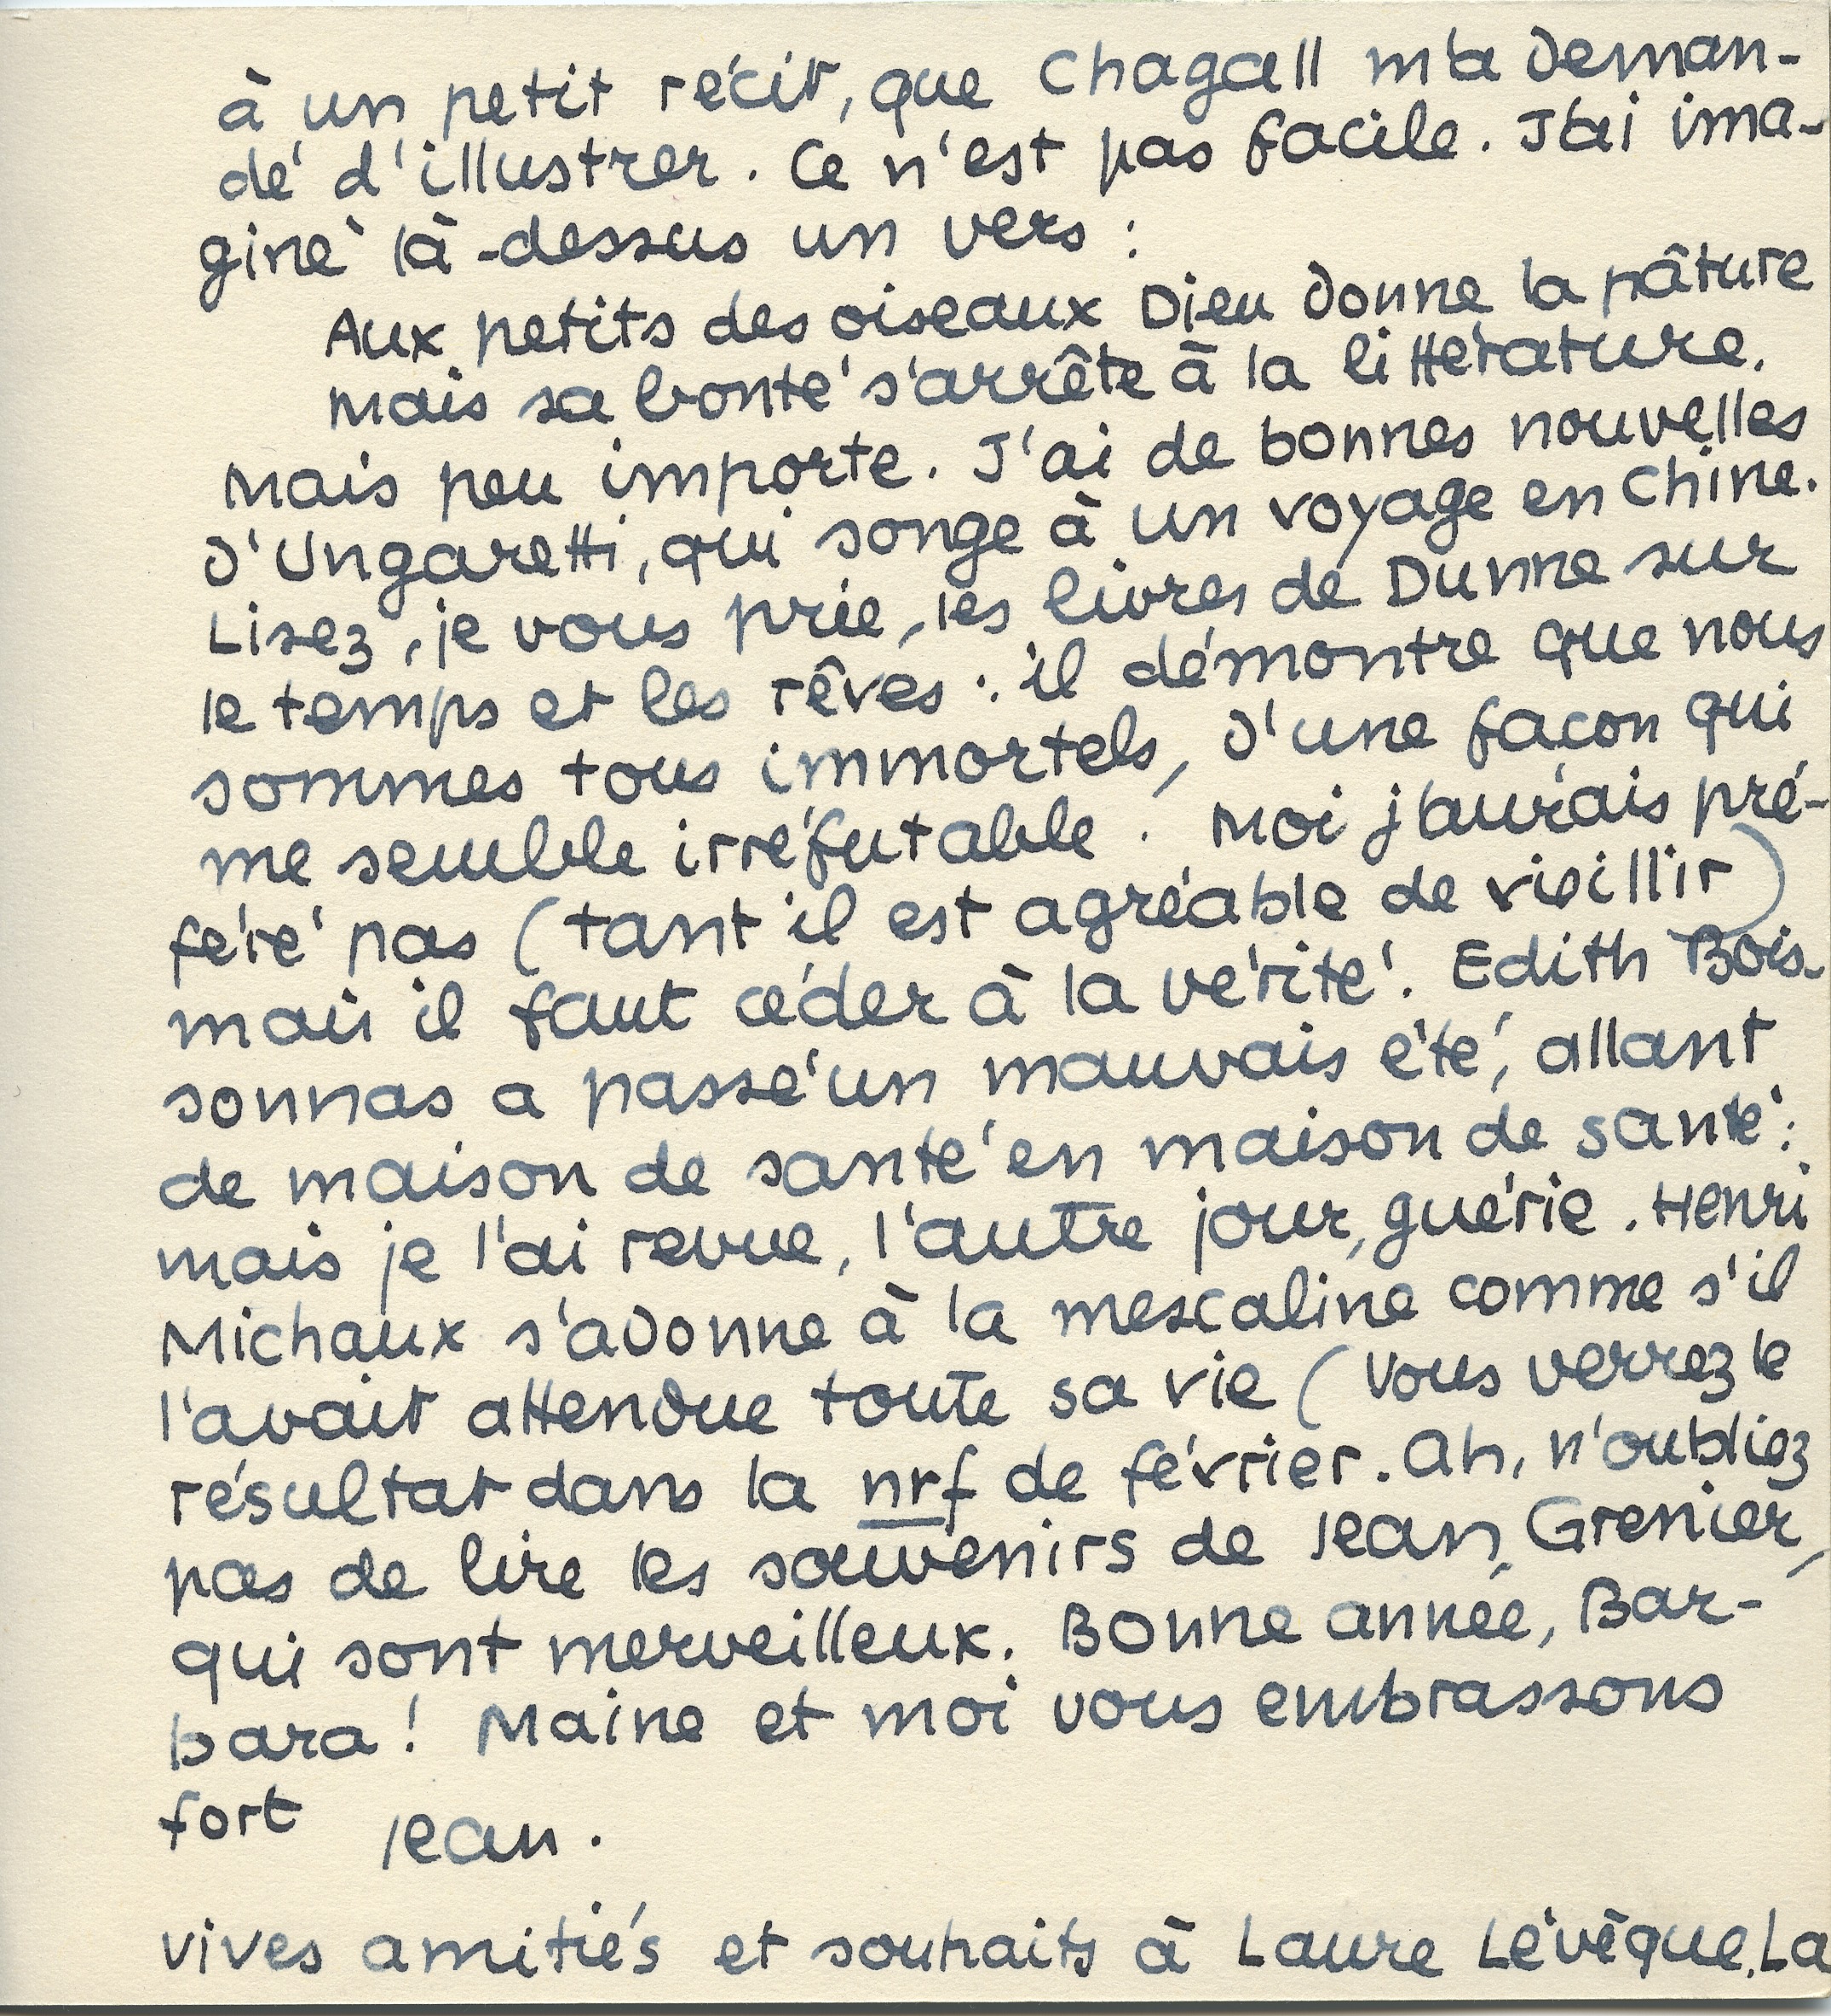 à un petit récit, que Chagall m'a deman-
dé d'illustrer. Ce n'est pas facile. J'ai ima-
giné là-dessus un vers :
Aux petits des oiseaux Dieu donne la pâture
Mais sa bonté s'arrête à la littérature.
Mais peu importe. J'ai de bonnes nouvelles
d'Ungaretti, qui songe à un voyage en Chine.
Lisez, je vous prie, les livres de Dunne sur
le temps et les rêves : il démontre que nous
sommes tous immortels, d'une façon qui
me semble irréfutable. Moi j'aurais pré-
féré pas (tant il est agréable de vieillir)
mais il faut céder à la vérité. Edith Bois-
sonnas a passé un mauvais été, allant
de maison de santé en maison de santé :
mais je l'ai revue, l'autre jour, guérie. Henri
Michaux s'adonne à la mescaline comme s'il
l'avait attendue toute sa vie (Vous verrez le
résultat dans la nrf de février. Ah, n'oubliez
pas de lire les souvenirs de Jean Grenier,
qui sont merveilleux. Bonne année, Bar-
bara ! Maine et moi vous embrassons
fort Jean.
vives amitiés et souhaits à Laure Lévêque. La